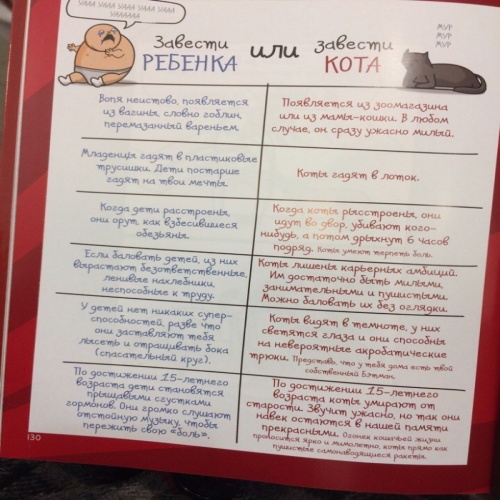 УААА УААА УААА УААА УААА
УАААААА
МУР
МУР
МУР
Завести
РЕБЕНКА
или
завести
КОТА
Вопя неистово, появляется
из вагины, словно гоблин,
перемазанный вареньем.
Появляется из зоомагазина
или из мамы-кошки. В любом
случае, он сразу ужасно милый.
Младенцы гадят в пластиковые
трусишки. Дети постарше
гадят на твои мечты.
Коты гадят в лоток.
Когда дети расстроены,
они орут, как взбесившиеся
обезьяны.
Когда коты расстроены, они
идут во двор, убивают кого-
нибудь, а потом дрыхнут 6 часов
подряд. Коты умеют терпеть боль.
Если баловать детей, из них
вырастают безответственные,
ленивые нахлебники,
неспособные к труду.
Коты лишены карьерных амбиций.
Им достаточно быть милыми,
занимательными и пушистыми.
Можно баловать их без оглядки.
У детей нет никаких супер-
способностей, разве что
они заставляют тебя
лысеть и отращивать бока
(спасательный круг).
Коты видят в темноте, у них
светятся глаза и они способны
на невероятные акробатические
трюки. Представь, что у тебя дома есть твой
собственный Бэтман.
По достижении 15-летнего
возраста дети становятся
прыщавыми сгустками
гормонов. Они громко слушают
отстойную музыку, чтобы
пережить свою «боль».
По достижении 15-летнего
возраста коты умирают от
старости. Звучит ужасно, но так они
навек остаются в нашей памяти
прекрасными. Огонек кошачьей жизни
проносится ярко и мимолетно, коты прямо как
пушистые самонаводящиеся ракеты.
130